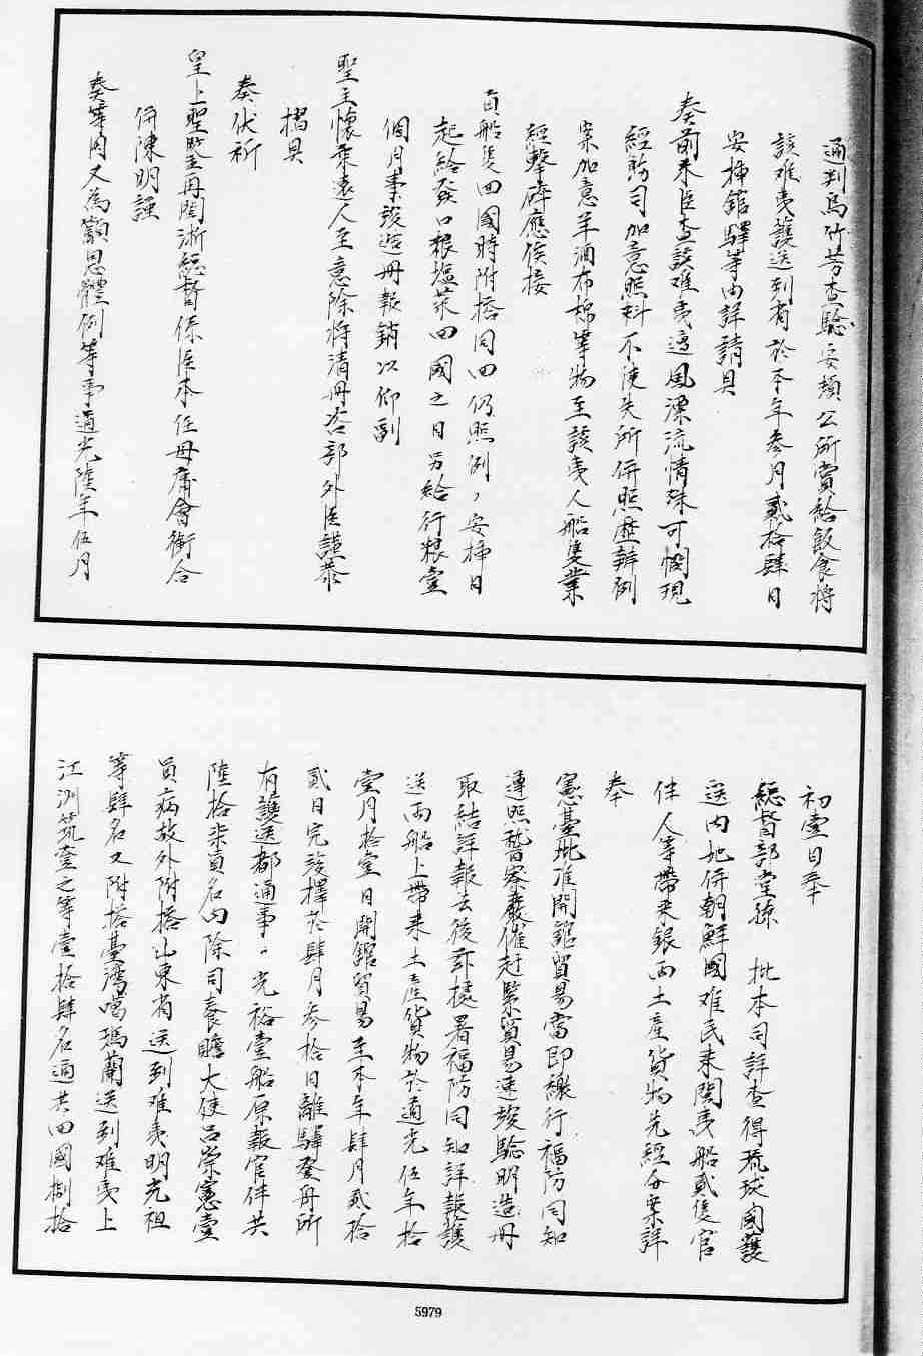 通判烏竹芳查驗安頓公所賞給飯食將
該难夷護送到省於本年叁月貳拾肆日
安揷館驛等由詳請具
奏前来臣查該难夷遭風漂流情殊可憫現
經飭司加意照料不使失所併照歷辦例
案加意羊酒布棉等物至該夷人船隻業
經擊碎應俟接
貢船隻囬國時附搭同囬仍照例安揷日
起給發口粮塩菜囬國之日另給行粮壹
個月事竣造册報銷以仰副
聖主懷柔遠人至意除將清册咨部外臣謹恭
摺具
奏伏祈
皇上聖鑒再閩浙總督係臣本任毋庸會銜合
併陳明謹
奏等因又為籲恩體例等事道光陸年伍月
初壹日奉
總督部堂孫 批本司詳查得琉球國護
送内地併朝鮮國难民来閩夷船貳隻官
伴人等帶来銀両土產貨物先經分案詳
奉
憲臺批准開舘貿易當即檄行福防同知
遵照督察嚴催赶緊貿易速竣驗明造册
取結詳報去後茲據署福防同知詳報護
送両船上帶来土產貨物於道光伍年拾
壹月拾壹日開舘貿易至本年肆月貳拾
貳日完竣擇於肆月叁拾日離驛登舟所
有護送都通事 光裕壹船原報官伴共
陸拾柒員名内除司養贍大使吕崇憲壹
員病故外附搭山東省送到难夷明光祖
等肆名又附搭臺灣噶瑪蘭送到难夷上
江洲筑登之等壹拾肆名通共囬國捌拾
5979